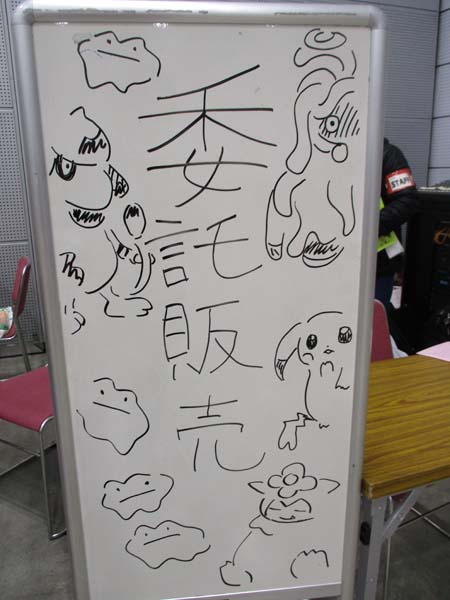 委託販売
STAFF